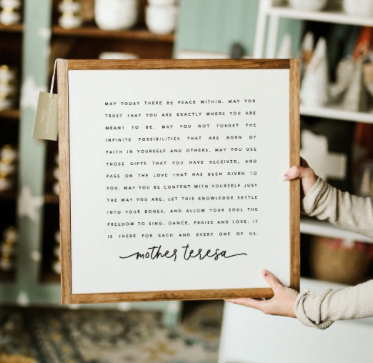 MAY TODAY THERE BE PEACE WITHIN. MAY YOU
TRUST THAT YOU ARE EXACTLY WHERE YOU ARE
MEANT TO BE. MAY YOU NOT FORGET THE
INFINITE POSSIBILITIES THAT ARE BORN OF
FAITH IN YOURSELF AND OTHERS. MAY YOU USE
THOSE GIFTS THAT YOU HAVE RECEIVED, AND
PASS ON THE LOVE THAT HAS BEEN GIVEN TO
YOU. MAY YOU BE CONTENT WITH YOURSELF JUST
THE WAY YOU ARE. LET THIS KNOWLEDGE SETTLE
INTO YOUR BONES, AND ALLOW YOUR SOUL THE
FREEDOM TO SING, DANCE, PRAISE AND LOVE. IT
IS THERE FOR EACH AND EVERY ONE OF US.
mother teresa